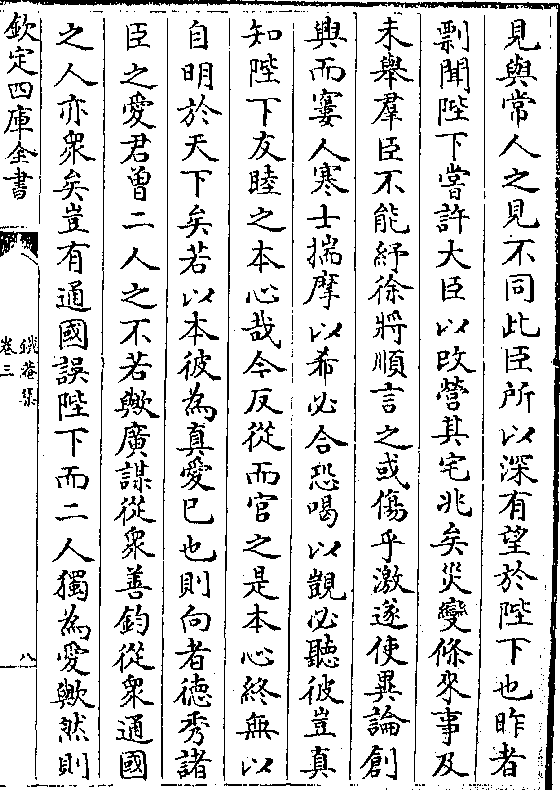 見與常人之見不同此臣所以深有望於陛下也昨者
剽聞陛下嘗許大臣以改營其宅兆矣災變倏來事及
未舉羣臣不能紓徐將順言之或傷乎激遂使異論創
興而寠人寒士揣摩以希必合恐喝以覬必聽彼豈真
知陛下友睦之本心哉今反從而官之是本心終無以
自明於天下矣若以本彼為真愛巳也則向者德秀諸
臣之愛君曽二人之不若歟廣謀從衆善鈞從衆通國
之人亦衆矣豈有通國誤陛下而二人獨為愛歟然則
欽定四庫全書
鐵菴集
卷三
八